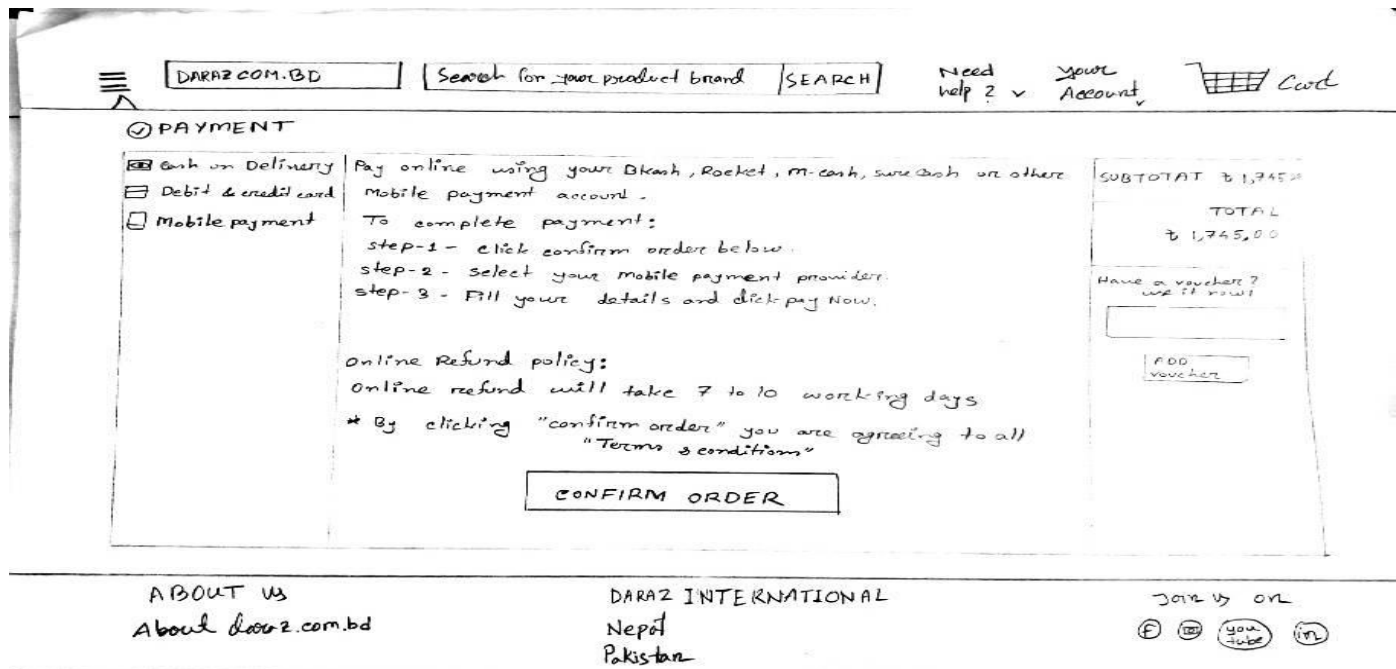 DARAZ COM.BD
Search for your product brand
SEARCH
Need help ?
your Account
Cart
PAYMENT
Cash on Delivery
Debit & credit card
Mobile payment
Pay online using your Bkash, Rocket, m-cash, sure cash or other
Mobile payment account.
To complete payment:
step-1 - click confirm order below.
step-2 - select your mobile payment provider.
step-3 - Fill your details and click pay Now.
Online Refund policy:
Online refund will take 7 to 10 working days
* By clicking "confirm order" you are agreeing to all
"Terms & conditions"
CONFIRM ORDER
SUBTOTAT ৳ 1,745
TOTAL
৳ 1,745,00
Have a voucher ?
use it now!
ADD
voucher
ABOUT US
About daraz.com.bd
DARAZ INTERNATIONAL
Nepal
Pakistan
Join us on
f
you
tube
in